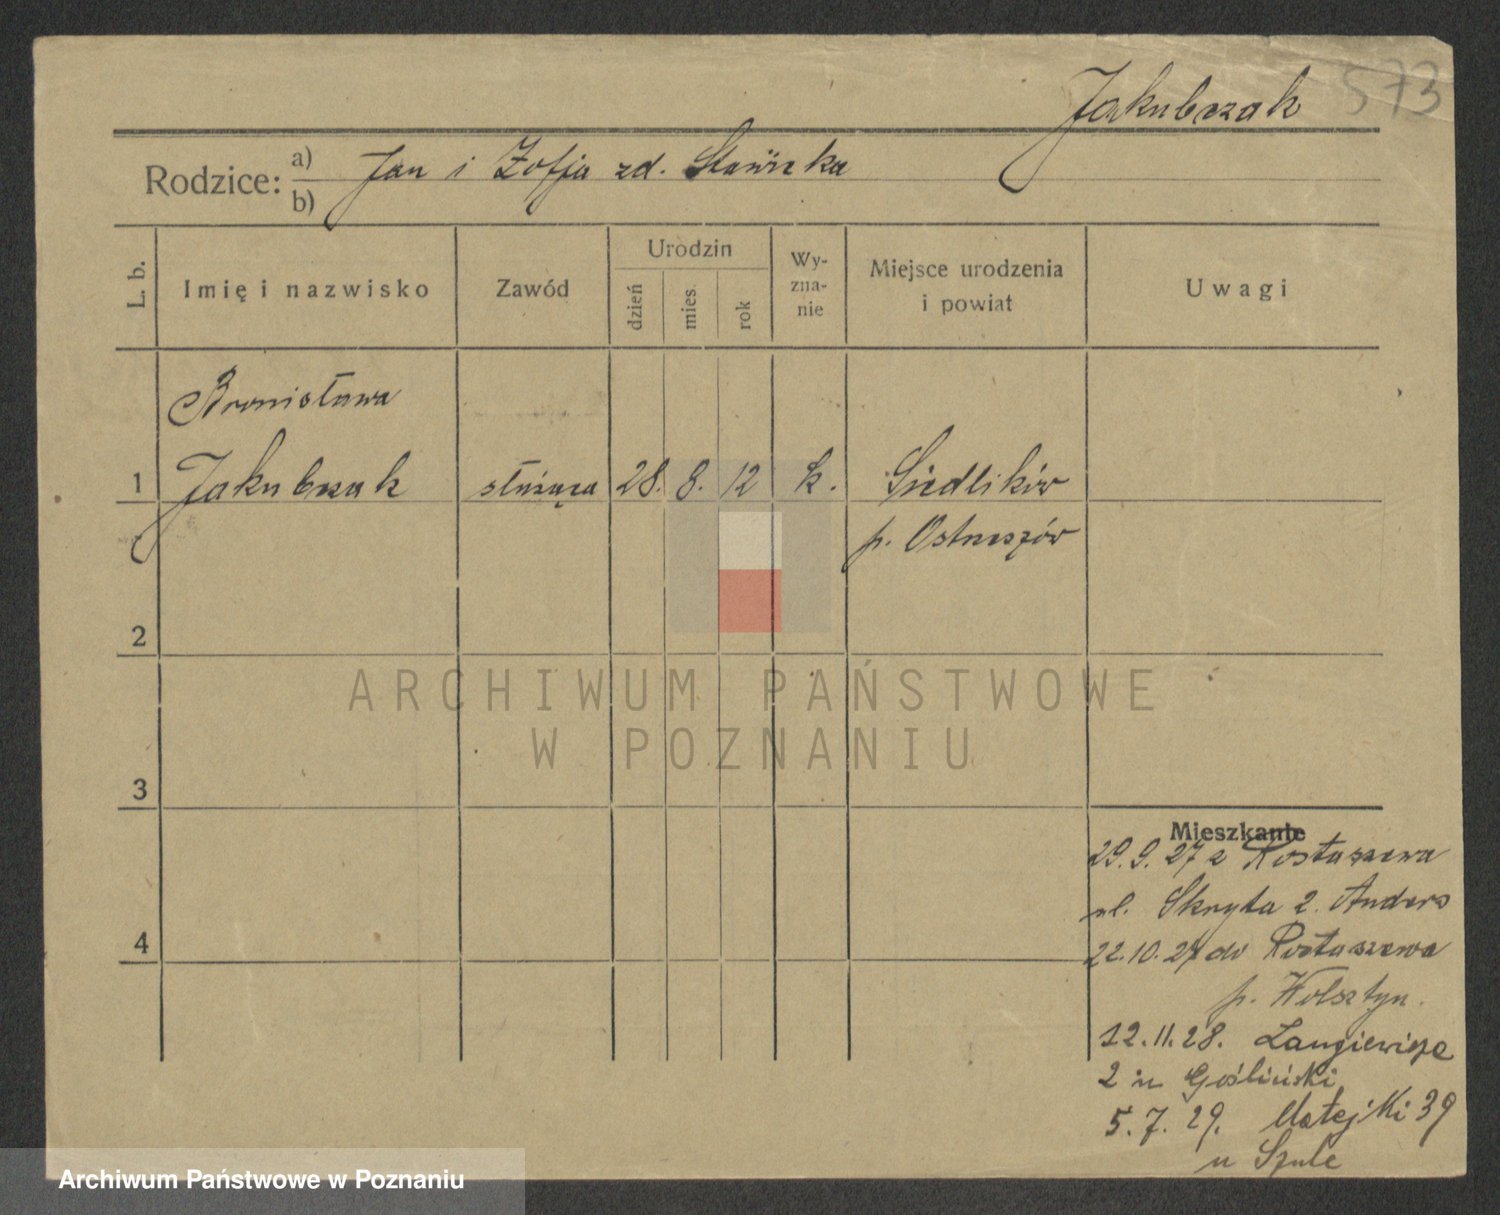 Jakubczak 573
Rodzice: a) Jan i Zofja zd.
b)
L. b.
Imię i nazwisko
Zawód
Urodzin
dzień
mies.
rok
Wy-
zna-
nie
Miejsce urodzenia
i powiat
Uwagi
Bronisława
1 Jakubczak służąca 28. 8. 12 k. Siedlików
p. Ostrzeszów
2
ARCHIWUM PAŃSTWOWE
W POZNANIU
3
Mieszkanie
29.9.27 z Rostarzewa
ul. Skryta 2. Anders
22.10.27 do Rostarzewa
4
p. Wolsztyn.
12.11.28. Langiewicza
2 u Gośliński
5.7.29. Matejki 39
u Szulc
Archiwum Państwowe w Poznaniu